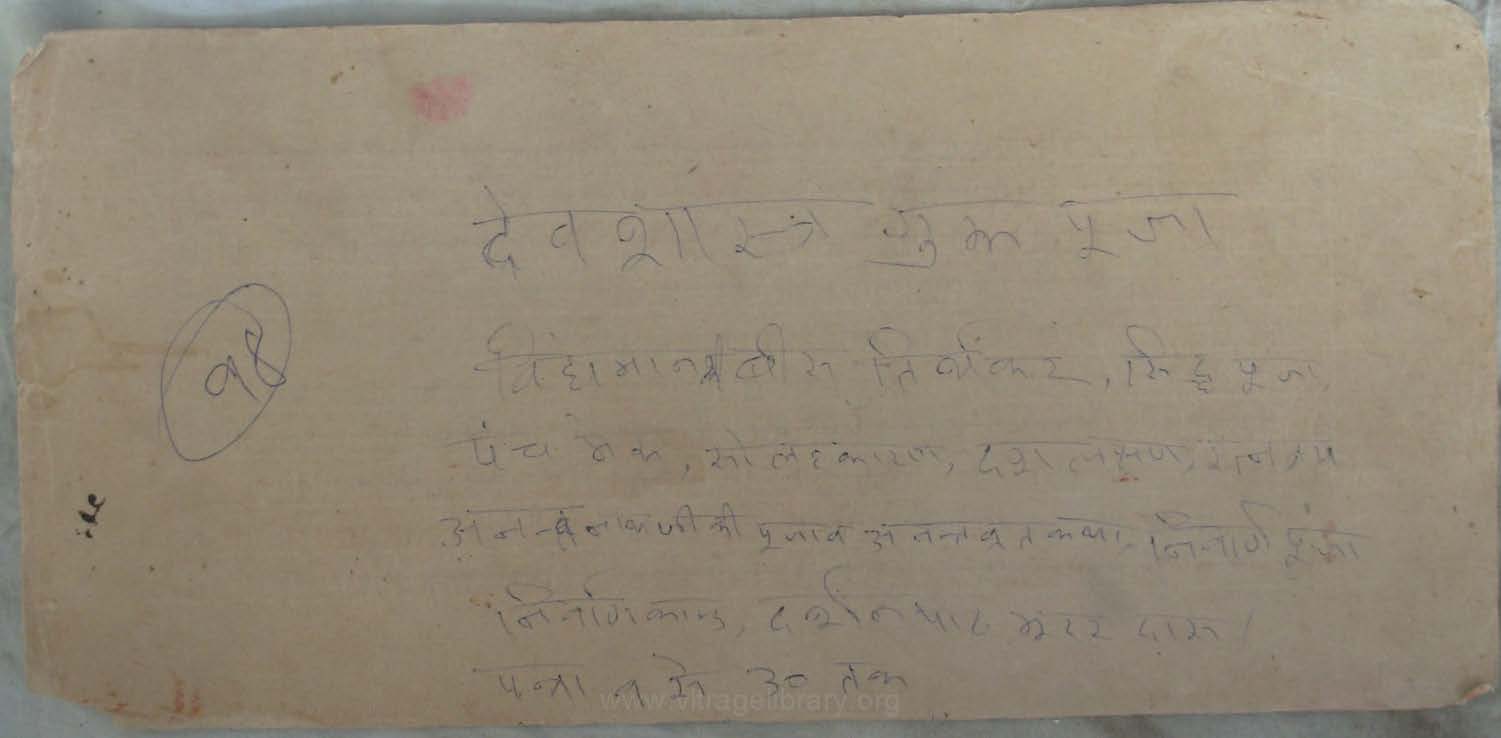 देव शास्त्र गुरू पूजा
१४
विंहामान बीस तिर्थंकर, सिद्ध पूजा,
पंच मेरू, सोलहकारण, दश लक्षण, रत्नत्रय
की पूजा व अनन्तवृत कथा, निर्वाण पूजा
निर्वाणकाण्ड, दर्शन पाठ भुदर दास
पन्ना १ से ३० तक
www.vitragelibrary.org